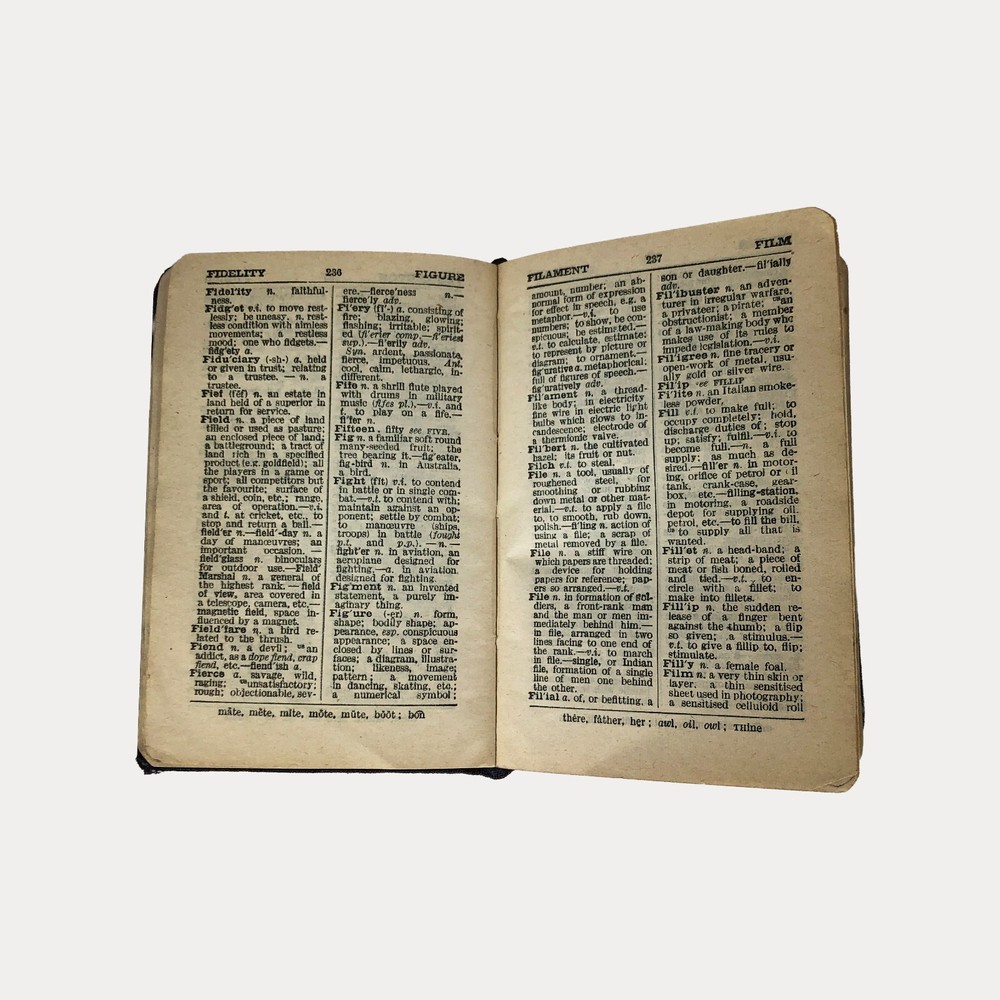 FIDELITY 236 FIGURE
Fidel'ity n. faithful-
ness.
Fidg'et v.i. to move rest-
lessly; be uneasy, n. rest-
less condition with aimless
movements; a restless
mood; one who fidgets.—
fidg'ety a.
Fidu'ciary (-sh-) a. held
or given in trust; relating
to a trustee. — n. a
trustee.
Fief (fēf) n. an estate in
land held of a superior in
return for service.
Field n. a piece of land
tilled or used as pasture;
an enclosed piece of land;
a battleground; a tract of
land rich in a specified
product (e.g. goldfield); all
the players in a game or
sport; all competitors but
the favourite; surface of
a shield, coin, etc.; range,
area of operation.—v.i.
and t. at cricket, etc., to
stop and return a ball.—
field'er n.—field'-day n. a
day of manœuvres; an
important occasion. —
field'glass n. binoculars
for outdoor use.—Field'
Marshal n. a general of
the highest rank. — field
of view, area covered in
a telescope, camera, etc.—
magnetic field, space in-
fluenced by a magnet.
Field'fare n. a bird re-
lated to the thrush.
Fiend n. a devil; an
addict, as a dope fiend, crap
fiend, etc.—fiend'ish a.
Fierce a. savage, wild,
raging; unsatisfactory;
rough; objectionable, sev-
ere.—fierce'ness n.—
fierce'ly adv.
Fi'ery (fī'-) a. consisting of
fire; blazing, glowing;
flashing; irritable; spirit-
ed (fi'erier comp.—fi'eriest
sup.).—fi'erily adv.
Syn. ardent, passionate,
fierce, impetuous. Ant.
cool, calm, lethargic, in-
different.
Fife n. a shrill flute played
with drums in military
music (fifes pl.).—v.i. and
t. to play on a fife.—
fi'fer n.
Fifteen, fifty see FIVE.
Fig n. a familiar soft round
many-seeded fruit; the
tree bearing it.—fig'eater,
fig-bird n. in Australia,
a bird.
Fight (fīt) v.i. to contend
in battle or in single com-
bat.—v.t. to contend with;
maintain against an op-
ponent; settle by combat;
to manœuvre (ships,
troops) in battle (fought
p.t. and p.p.). —n.—
fight'er n. in aviation, an
aeroplane designed for
fighting.—a. in aviation,
designed for fighting.
Fig'ment n. an invented
statement, a purely im-
aginary thing.
Fig'ure (-er) n. form,
shape; bodily shape; ap-
pearance, esp. conspicuous
appearance; a space en-
closed by lines or sur-
faces; a diagram, illustra-
tion; likeness, image;
pattern; a movement
in dancing, skating, etc.;
a numerical symbol;
māte, mēte, mīte, mōte, mūte, bōōt; bön
FILAMENT 237 FILM
amount, number; an ab-
normal form of expression
for effect in speech, e.g. a
metaphor.—v.i. to use
numbers; to show, be con-
spicuous; be estimated.—
v.t. to calculate, estimate;
to represent by picture or
diagram; to ornament.—
fig'urative a. metaphorical;
full of figures of speech.—
fig'uratively adv.
Fil'ament n. a thread-
like body; in electricity
fine wire in electric light
bulbs which glows to in-
candescence; electrode of
a thermionic valve.
Fil'bert n. the cultivated
hazel; its fruit or nut.
Filch v.t. to steal.
File n. a tool, usually of
roughened steel, for
smoothing or rubbing
down metal or other mat-
erial.—v.t. to apply a file
to, to smooth, rub down,
polish.—fi'ling n. action of
using a file; a scrap of
metal removed by a file.
File n. a stiff wire on
which papers are threaded;
a device for holding
papers for reference; pap-
ers so arranged.—v.t.
File n. in formation of sol-
diers, a front-rank man
and the man or men im-
mediately behind him.—
in file, arranged in two
lines facing to one end of
the rank.—v.i. to march
in file.—single, or Indian
file, formation of a single
line of men one behind
the other.
Fil'ial a. of, or befitting, a
son or daughter.—fil'ially
adv.
Fil'ibuster n. an adven-
turer in irregular warfare,
a privateer; a pirate; an
obstructionist; a member
of a law-making body who
makes use of its rules to
impede legislation.—v.i.
Fil'igree n. fine tracery or
open-work of metal, usu-
ally gold or silver wire.
Fil'ip see FILLIP
Fi'lite n. an Italian smoke-
less powder.
Fill v.t. to make full; to
occupy completely; hold,
discharge duties of; stop
up; satisfy; fulfil.—v.i. to
become full.—n. a full
supply; as much as de-
sired.—fill'er n. in motor-
ing, orifice of petrol or oil
tank, crank-case, gear-
box, etc.—filling-station,
in motoring, a roadside
depot for supplying oil,
petrol, etc.—to fill the bill,
to supply all that is
wanted.
Fill'et n. a head-band; a
strip of meat; a piece of
meat or fish boned, rolled
and tied.—v.t. to en-
circle with a fillet; to
make into fillets.
Fill'ip n. the sudden re-
lease of a finger bent
against the thumb; a flip
so given; a stimulus.—
v.t. to give a fillip to, flip;
stimulate.
Fill'y n. a female foal.
Film n. a very thin skin or
layer; a thin sensitised
sheet used in photography;
a sensitised celluloid roll
thêre, fàther, hẹr; awl, oil, owl; THine